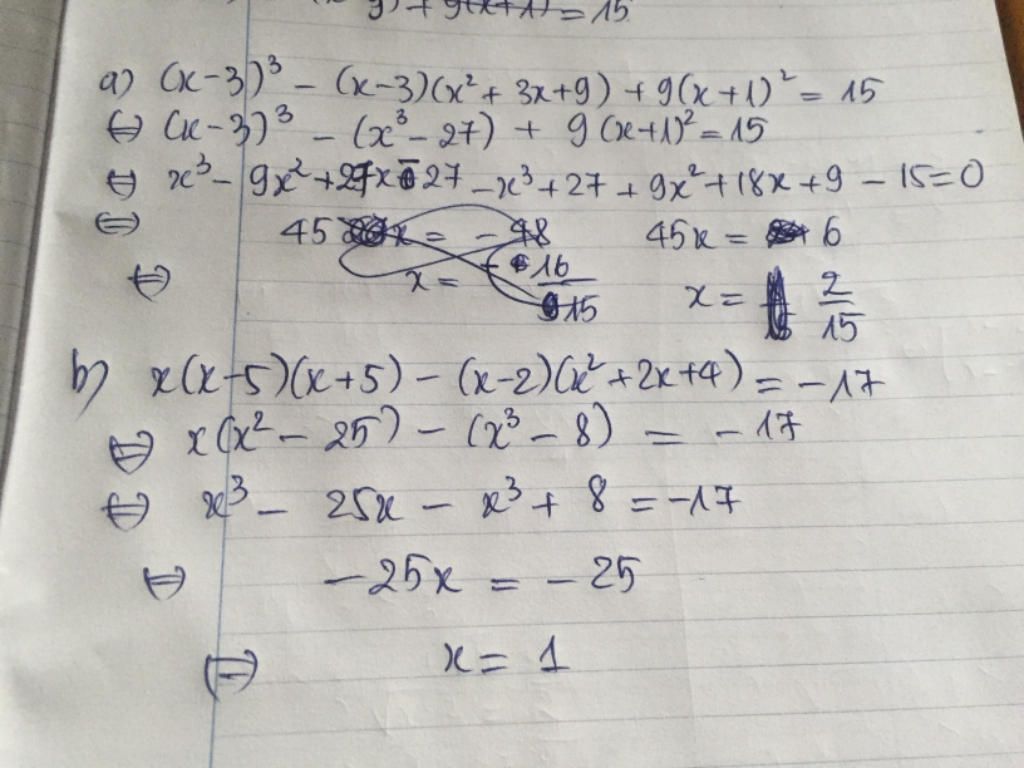 9) + 9(x+1) = 15
a) (x-3)³ - (x-3)(x² + 3x+9) + 9(x+1)² = 15
⇔ (x-3)³ - (x³ - 27) + 9(x+1)² = 15
⇔ x³ - 9x² + 27x - 27 - x³ + 27 + 9x² + 18x + 9 - 15 = 0
⇔ 45x = -48 45x = 6
⇔ x = -16/15 x = 2/15
b) x(x-5)(x+5) - (x-2)(x² + 2x+4) = -17
⇔ x(x² - 25) - (x³ - 8) = -17
⇔ x³ - 25x - x³ + 8 = -17
⇔ -25x = -25
⇔ x = 1